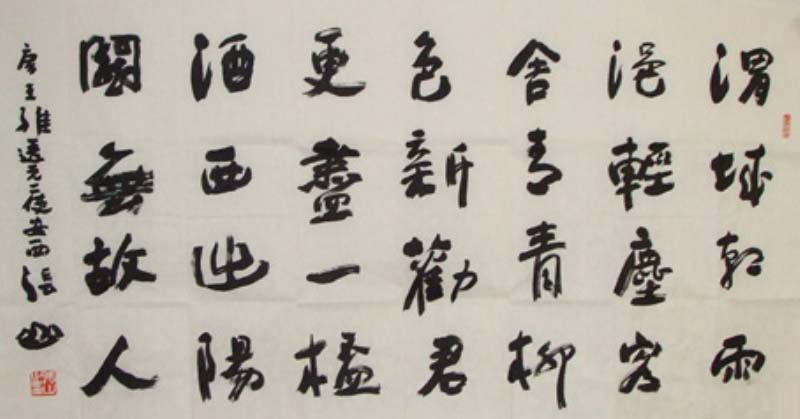 渭城朝雨
浥輕塵客
舍青青柳
色新勸君
更盡一杯
酒西出陽
關無故人
唐王維送元二使安西張